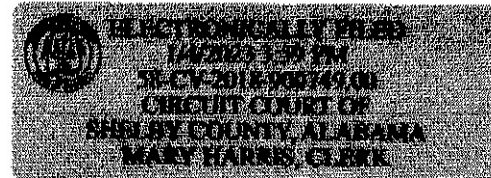 ELECTRONICALLY FILED
1/4/2023 1:39 PM
58-CV-2018-900749.00
CIRCUIT COURT OF
SHELBY COUNTY, ALABAMA
MARY HARRIS, CLERK